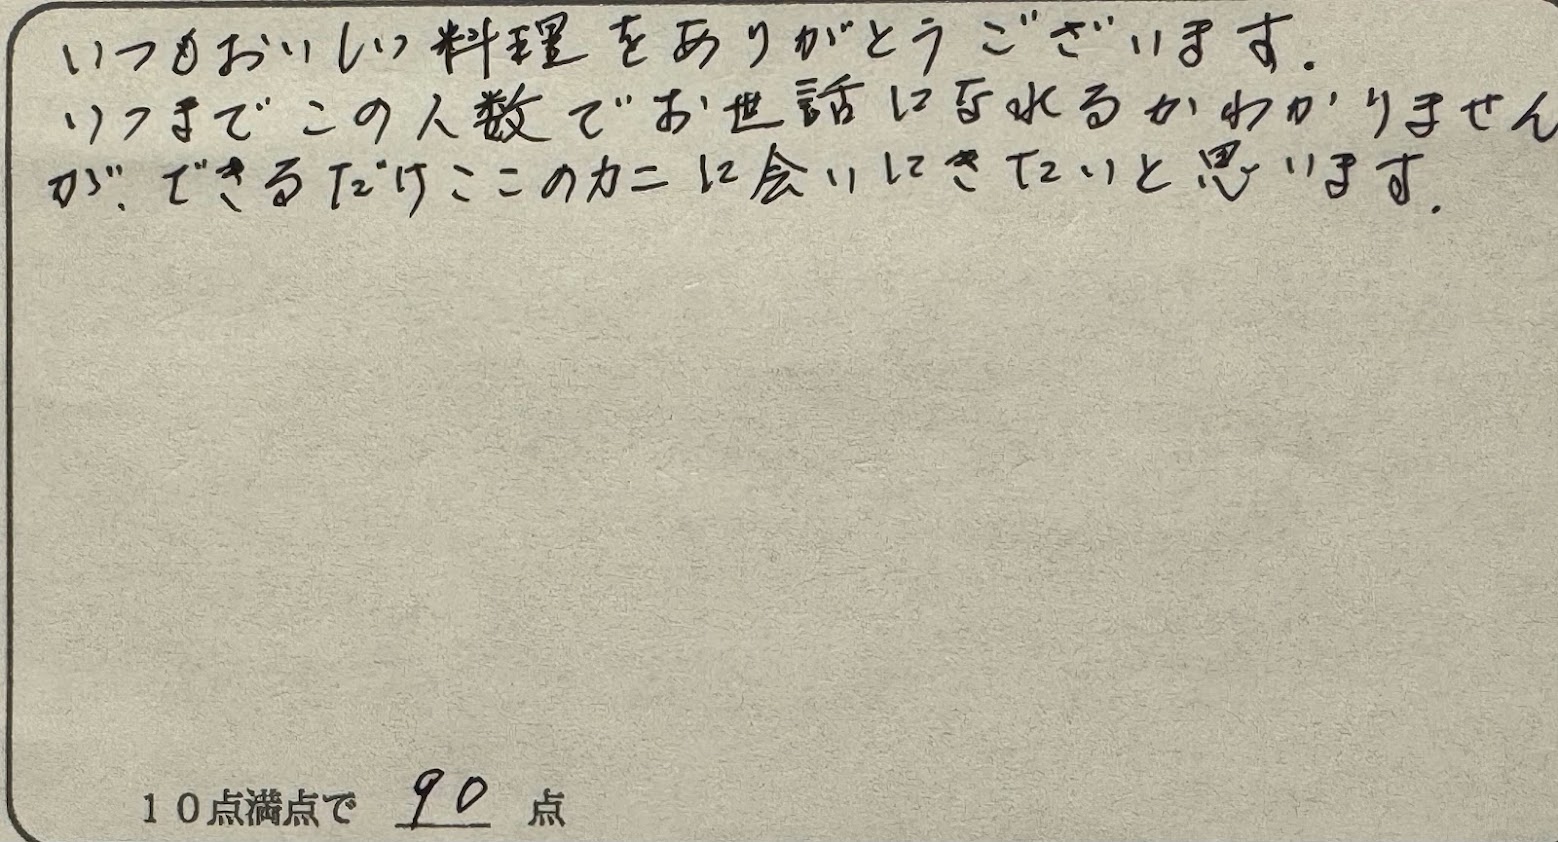 いつもおいしい料理をありがとうございます.
いつまでこの人数でお世話になれるかわかりません
が、できるだけここのカニに会いにきたいと思います.
10点満点で 90 点